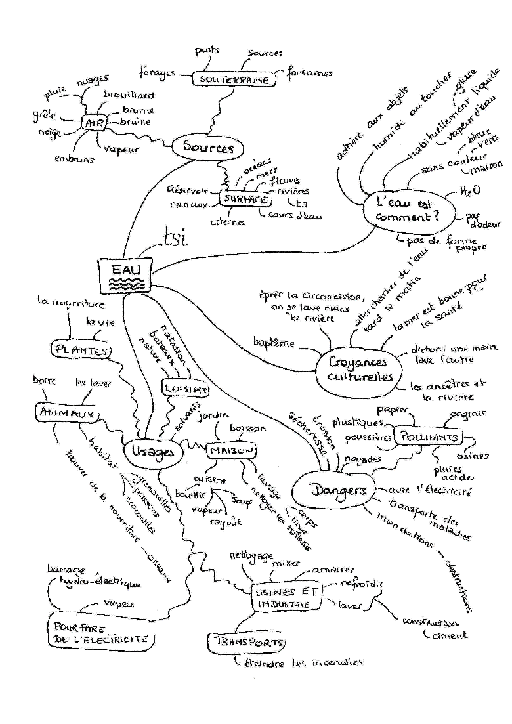 puits
sources
forages
SOUTERRAINE
pluie
nuages
brouillard
grêle
brume
AIR
bruine
neige
vapeur
embruns
Sources
océans
mers
fleuves
Réservoir
rivières
canaux
SURFACE
citernes
cours d'eau
adhère aux objets
humide au toucher
habituellement liquide
glace
vapeur d'eau
sans couleur
bleu
vert
marron
H2O
L'eau est
comment?
pas
d'odeur
pas de forme
propre
tsi.
EAU
aller chercher de l'eau
tard le matin
la mer est bonne pour
la santé
Après la circoncision,
on se lave dans
la rivière
baptême
Croyances
culturelles
d'abord une main
lave l'autre
les ancêtres et
la rivière
la nourriture
la vie
PLANTES
natation
bateaux
nature
LOISIRS
boire
les laver
ANIMAUX
Usages
jardin
boisson
MAISON
habitat
grenouilles
poissons
crocodiles
oiseaux
trouver de la nourriture
cuisine
bouillir
vapeur
soup
ragoût
lavage
corps
linge
nettoyer les toilettes
érosion
sécheresse
noyades
Dangers
papier
plastiques
engrais
poussières
POLLUANTS
usines
pluies
acides
avec l'électricité
transporte des
maladies
inondations
destructions
barrage
hydro-électrique
vapeur
POUR FAIRE
DE L'ÉLECTRICITÉ
nettoyage
mixer
refroidir
USINES ET
INDUSTRIE
laver
construction
ciment
TRANSPORTS
éteindre les incendies